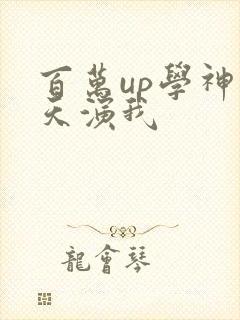 百萬up學神
天演我
龍會琴